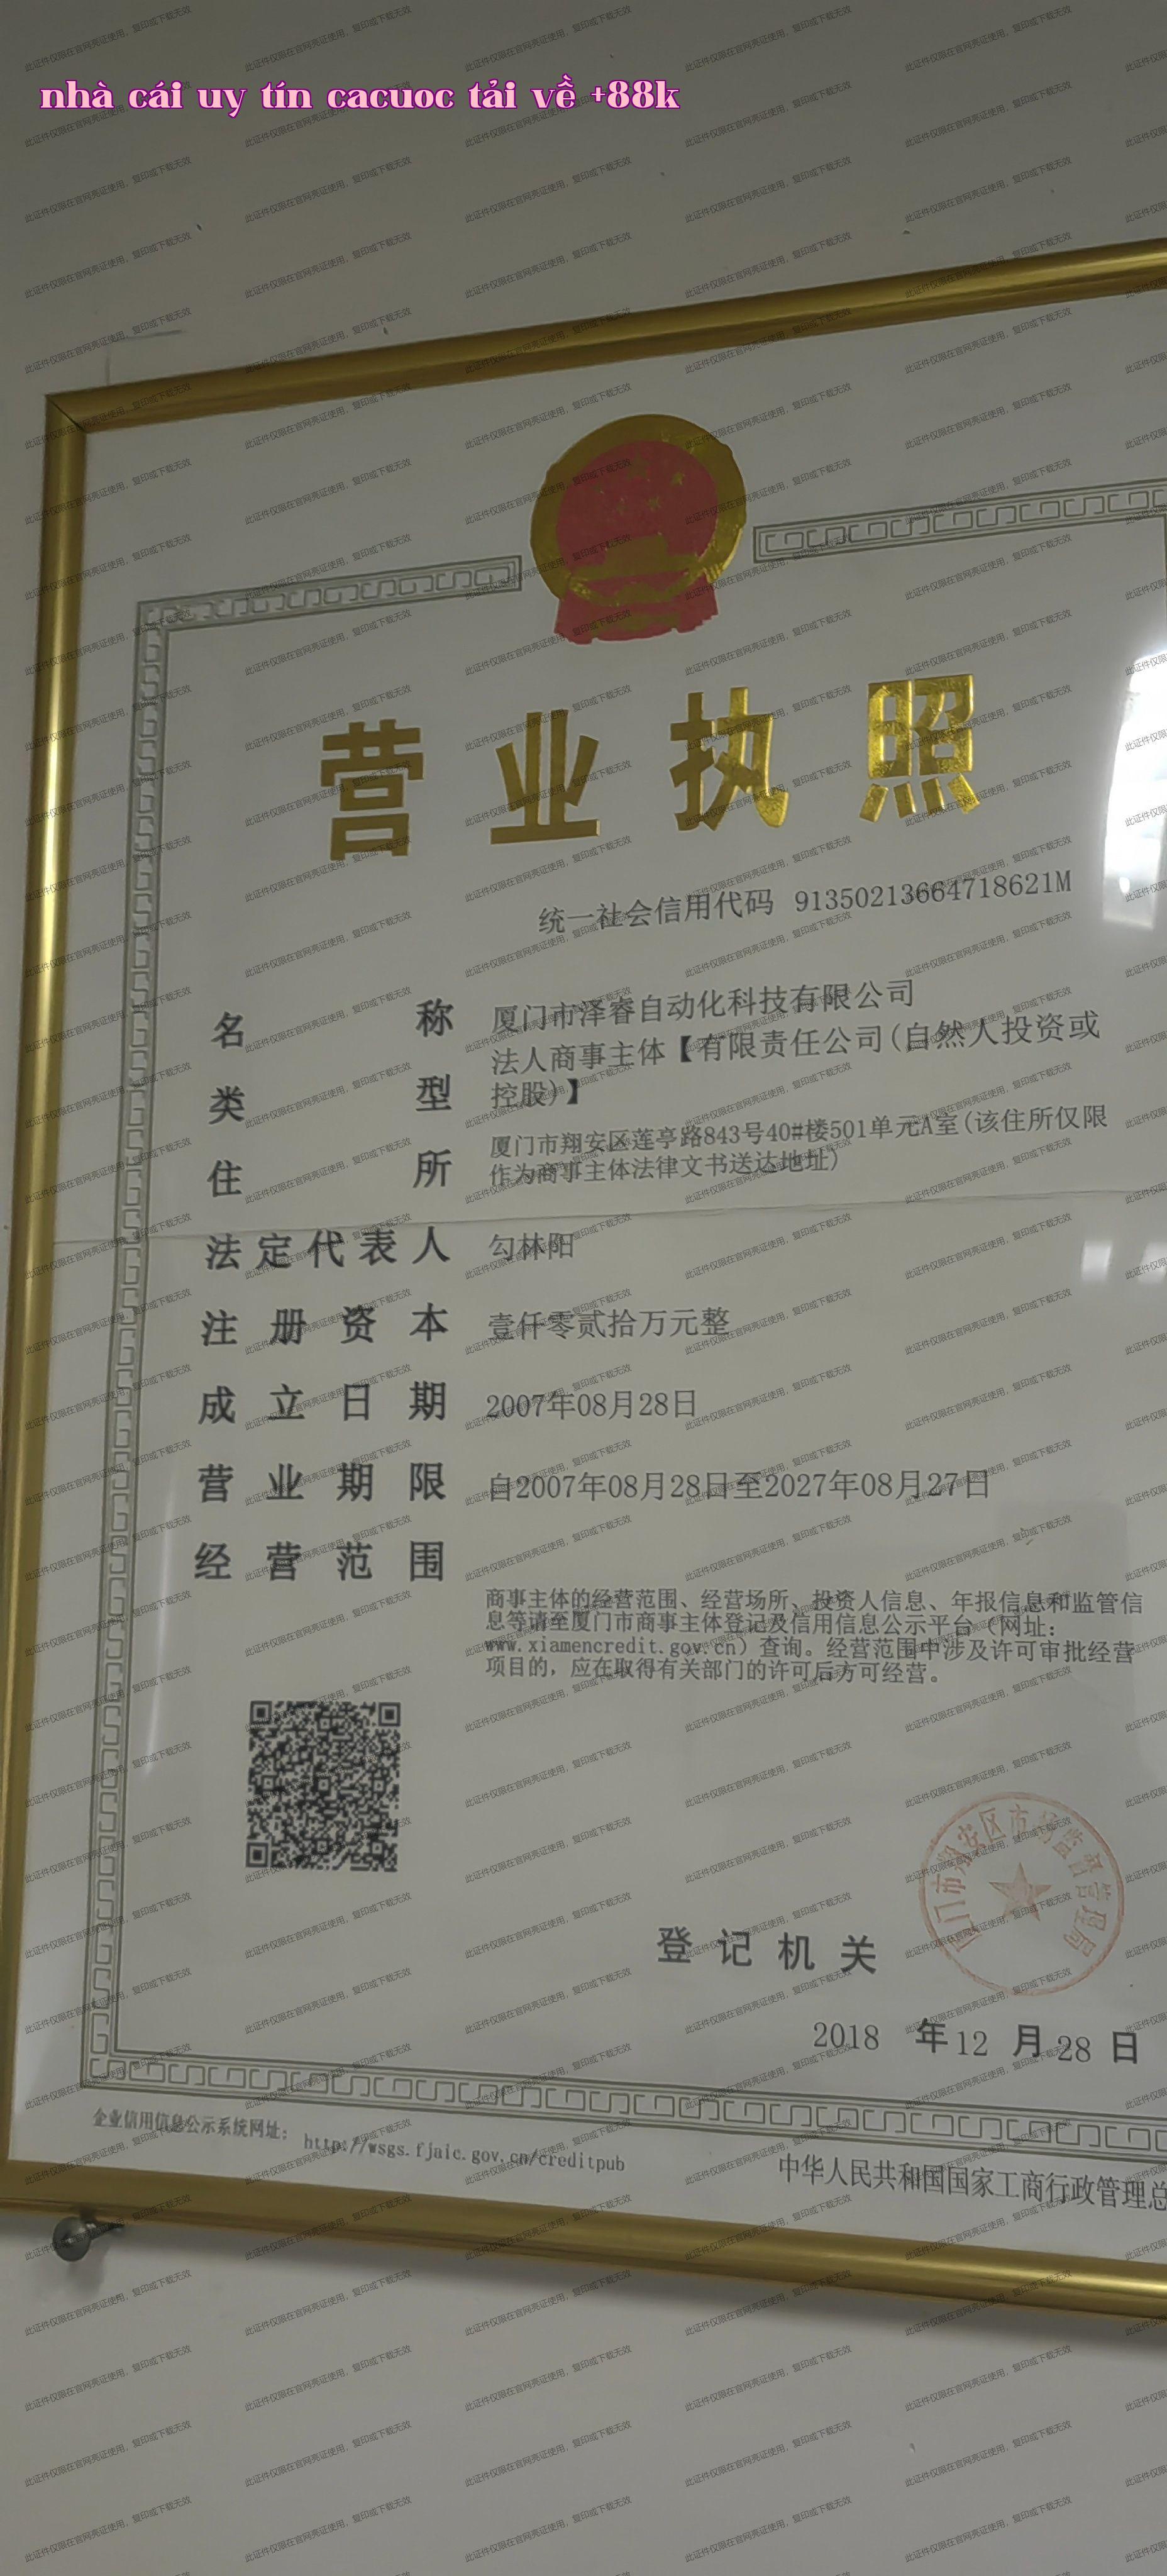 nhà cái uy tín cacuoc tải về +88k
营业执照
统一社会信用代码 91350213664718621M
名称 厦门市泽睿自动化科技有限公司
类型 法人商事主体【有限责任公司(自然人投资或
控股)】
住所 厦门市翔安区莲亭路843号40#楼501单元A室(该住所仅限
作为商事主体法律文书送达地址)
法定代表人 勾林阳
注册资本 壹仟零贰拾万元整
成立日期 2007年08月28日
营业期限 自2007年08月28日至2027年08月27日
经营范围
商事主体的经营范围、经营场所、投资人信息、年报信息和监管信
息等请至厦门市商事主体登记及信用信息公示平台（网址：
www.xiamencredit.gov.cn）查询。经营范围中涉及许可审批经营
项目的，应在取得有关部门的许可后方可经营。
厦门市翔安区市场监督管理局
登记机关
2018 年 12 月 28 日
企业信用信息公示系统网址： http://wsgs.fjaic.gov.cn/creditpub
中华人民共和国国家工商行政管理总
此证件仅限在官网亮证使用，复印或下载无效